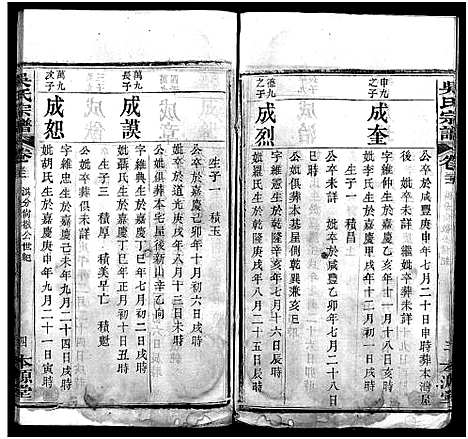 吳氏宗譜
卷三
本源堂
公卒於咸豐庚申年七月二十日申時葬本宅屋
後 繼妣卒葬未詳
申九之子
成奎
字維仲生於嘉慶乙亥年十一月十八日亥時
妣李氏生於嘉慶甲戌年十二月初一日戌時
妣卒於咸豐乙卯年七月二十八日
巳時 生子一 積昌
公妣俱葬本基星側乾巽兼亥巳
德九之子
成烈
字 生於乾隆庚 年 六日辰時
妣 氏生於乾隆庚戌年八月二十五日辰時
生子一 積玉
公卒於嘉慶己卯年十月初六日戌時
妣卒於道光庚戌年八月十三日未時
公妣俱葬本宅屋後新山辛乙向
萬九長子
成謨
字維典生於嘉慶丁巳年七月初二日戌時
妣聶氏生於嘉慶丁巳年正月初十日丑時
生子三 積厚 積美早亡 積魁
公妣卒葬俱未詳
萬九次子
成恕
字維忠生於嘉慶庚申年九月二十四日戌時
妣胡氏生於嘉慶庚申年九月二十一日寅時
吳氏宗譜
卷三
四
本源堂